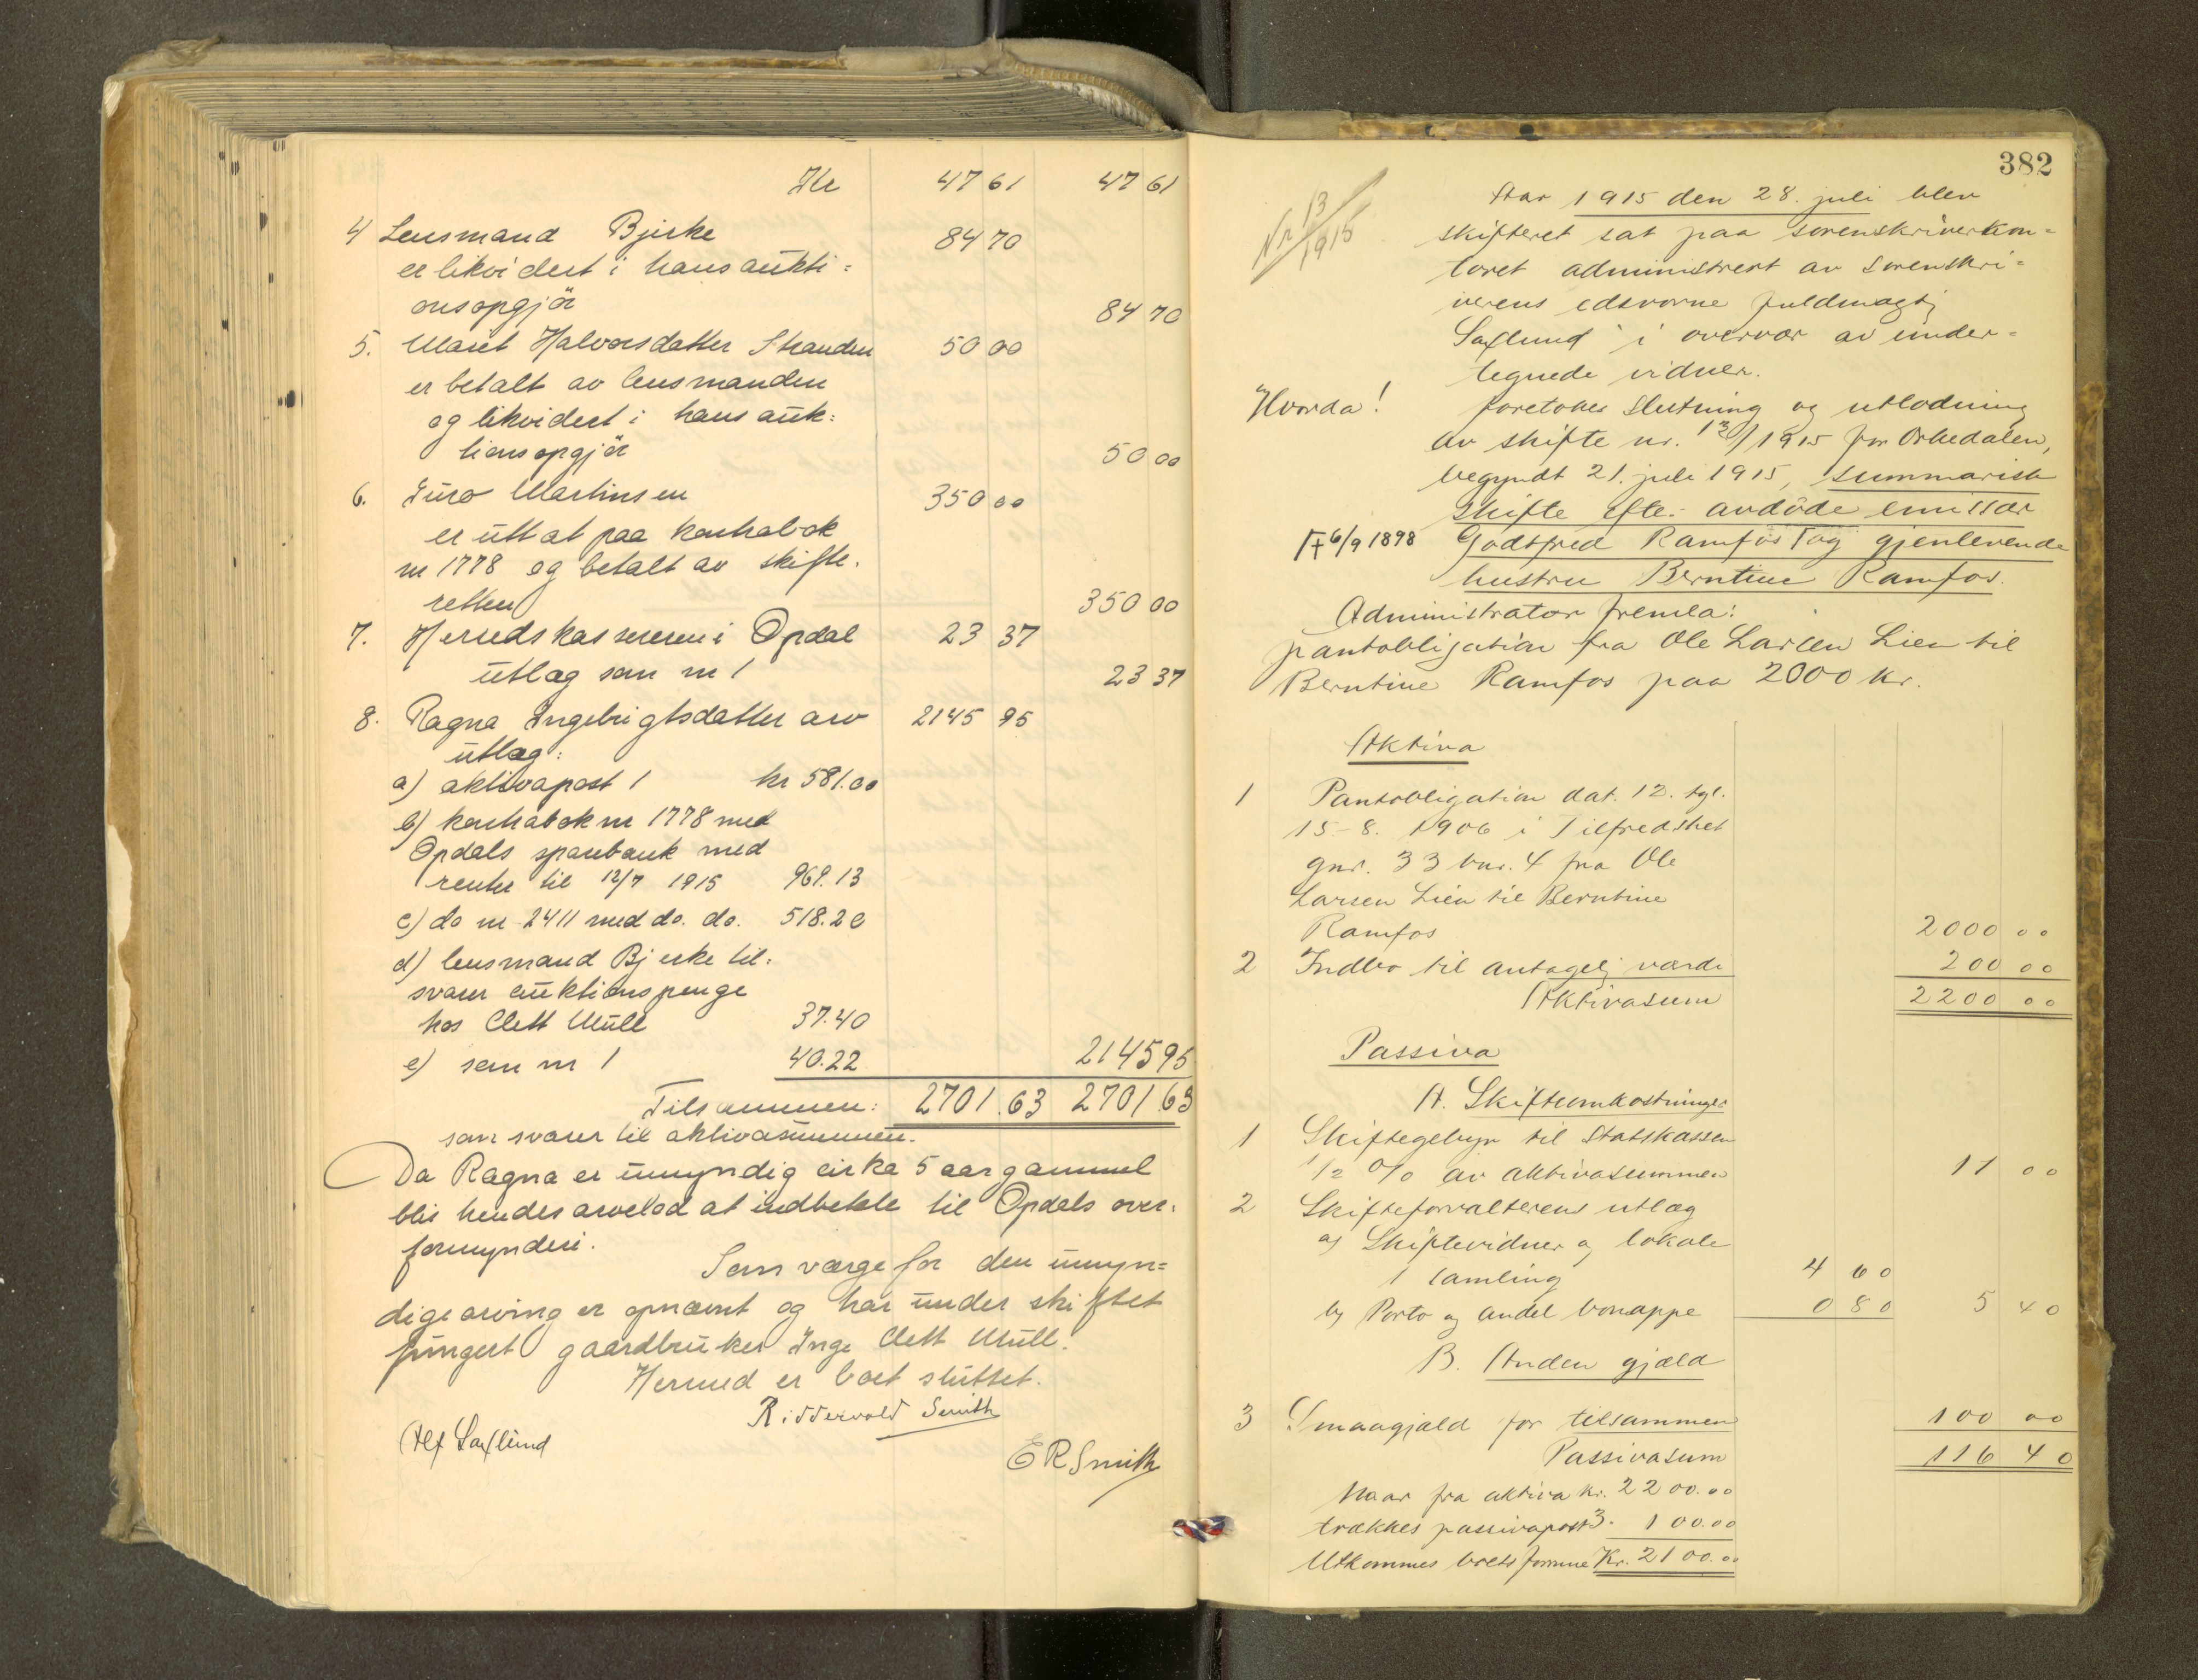 Kr 47 61 47 61
4 Lensmand Bjerke 84 70
er likvidert i hans aukti=
onsopgjør 84 70
5. Marit Halvorsdatter Stranden 50 00
er betalt av lensmanden
og likvidert i hans auk=
tionsopgjør 50 00
6. Guro Martinsen 350 00
er uttat paa kontrabok
nr 1778 og betalt av skifte-
retten 350 00
7. Herredskassereren i Opdal 23 37
utlæg som nr 1 23 37
8. Ragna Ingebrigtsdatter arv 2145 95
utlæg:
a) aktivapost 1 kr 581.00
b) kontrabok nr 1778 med
Opdals sparebank med
renter til 12/7 1915 969.13
c) do nr 2411 med do. do. 518.20
d) lensmand Bjerke til-
svarer auktionspenge
hos Clett Mull 37.40
e) som nr 1 40.22 2145 95
Tilsammen: 2701.63 2701.63
som svarer til aktivasummen.
Da Ragna er umyndig cirka 5 aar gammel
blir hendes arvelod at indbetale til Opdals over-
formynderi.
Som værge for den umyn=
dige arving er opnævnt og har under skiftet
fungert gaardbruker Inge Clett Mull.
Hermed er boet sluttet.
Riddervold Smith
Alf Saxlund
E R Smith
382
Nr 13/1915
Aar 1915 den 28. juli blev
skifteret sat paa sorenskriverkon=
toret administrert av sorenskri=
verens edsvorne fuldmægtig
Saxlund i overvær av under=
tegnede vidner.
Hvorda!
foretokes slutning og utlodning
av skifte nr. 13/1915 for Orkedalen,
begyndt 21. juli 1915, summarisk
skifte efter avdøde emissær
† 6/9 1898 Godtfred Ramfos og gjenlevende
hustru Berntine Ramfos.
Administrator fremla:
pantobligation fra Ole Larsen Lien til
Berntine Ramfos paa 2000 kr.
Aktiva
1 Pantobligation dat. 12. tgl.
15-8. 1906 i Tilfredshet
gnr. 33 bnr. 4 fra Ole
Larsen Lien til Berntine
Ramfos 2000 00
2 Indbo til antagelig værdi 200 00
Aktivasum 2200 00
Passiva
A. Skifteomkostninger
1 Skiftegebyr til Statskassen
1/2 % av aktivasummen 11 00
2 Skifteforvalterens utlæg
a) Skiftevidner og lokale
1 samling 4 60
b) Porto og andel bonappe 0 80 5 40
B. Anden gjæld
3 Smaagjæld for tilsammen 100 00
Passivasum 116 40
Naar fra aktiva kr. 2200.00
trækkes passivapost 3 - 100.00
Utkommes boets formue Kr. 2100.00